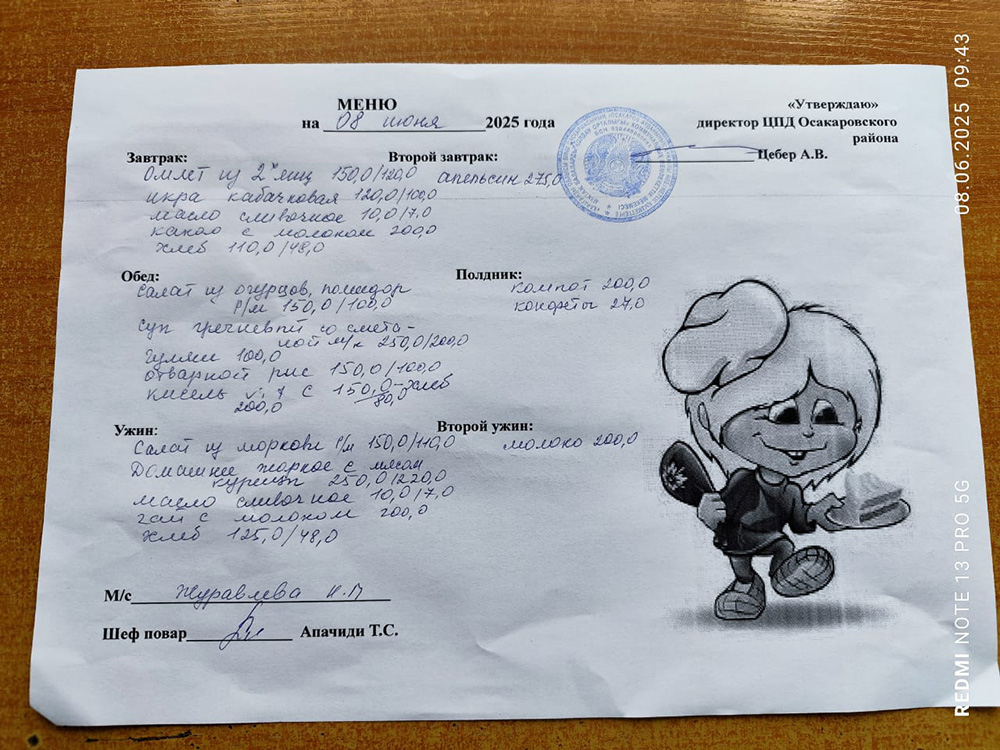 МЕНЮ
на 08 июня 2025 года
«Утверждаю»
директор ЦПД Осакаровского
района
Цебер А.В.
Завтрак:
Омлет из 2х яиц 150,0/120,0
икра кабачковая 120,0/100,0
масло сливочное 10,0/7,0
какао с молоком 200,0
хлеб 110,0/48,0
Второй завтрак:
апельсин 275,0
Обед:
Салат из огурцов, помидор
Р/м 150,0/100,0
Суп гречневый со смета-
ной м/к 250,0/200,0
Гуляш 100,0
отварной рис 150,0/100,0
кисель с 150,0-хлеб
200,0 80,0
Полдник:
компот 200,0
конфеты 27,0
Ужин:
Салат из моркови Р/м 150,0/110,0
Домашнее жаркое с мясом
курицы 250,0/220,0
масло сливочное 10,0/7,0
чай с молоком 200,0
хлеб 125,0/48,0
Второй ужин:
молоко 200,0
М/с Журавлева Н.П
Шеф повар Апачиди Т.С.
08.06.2025 09:43
REDMI NOTE 13 PRO 5G